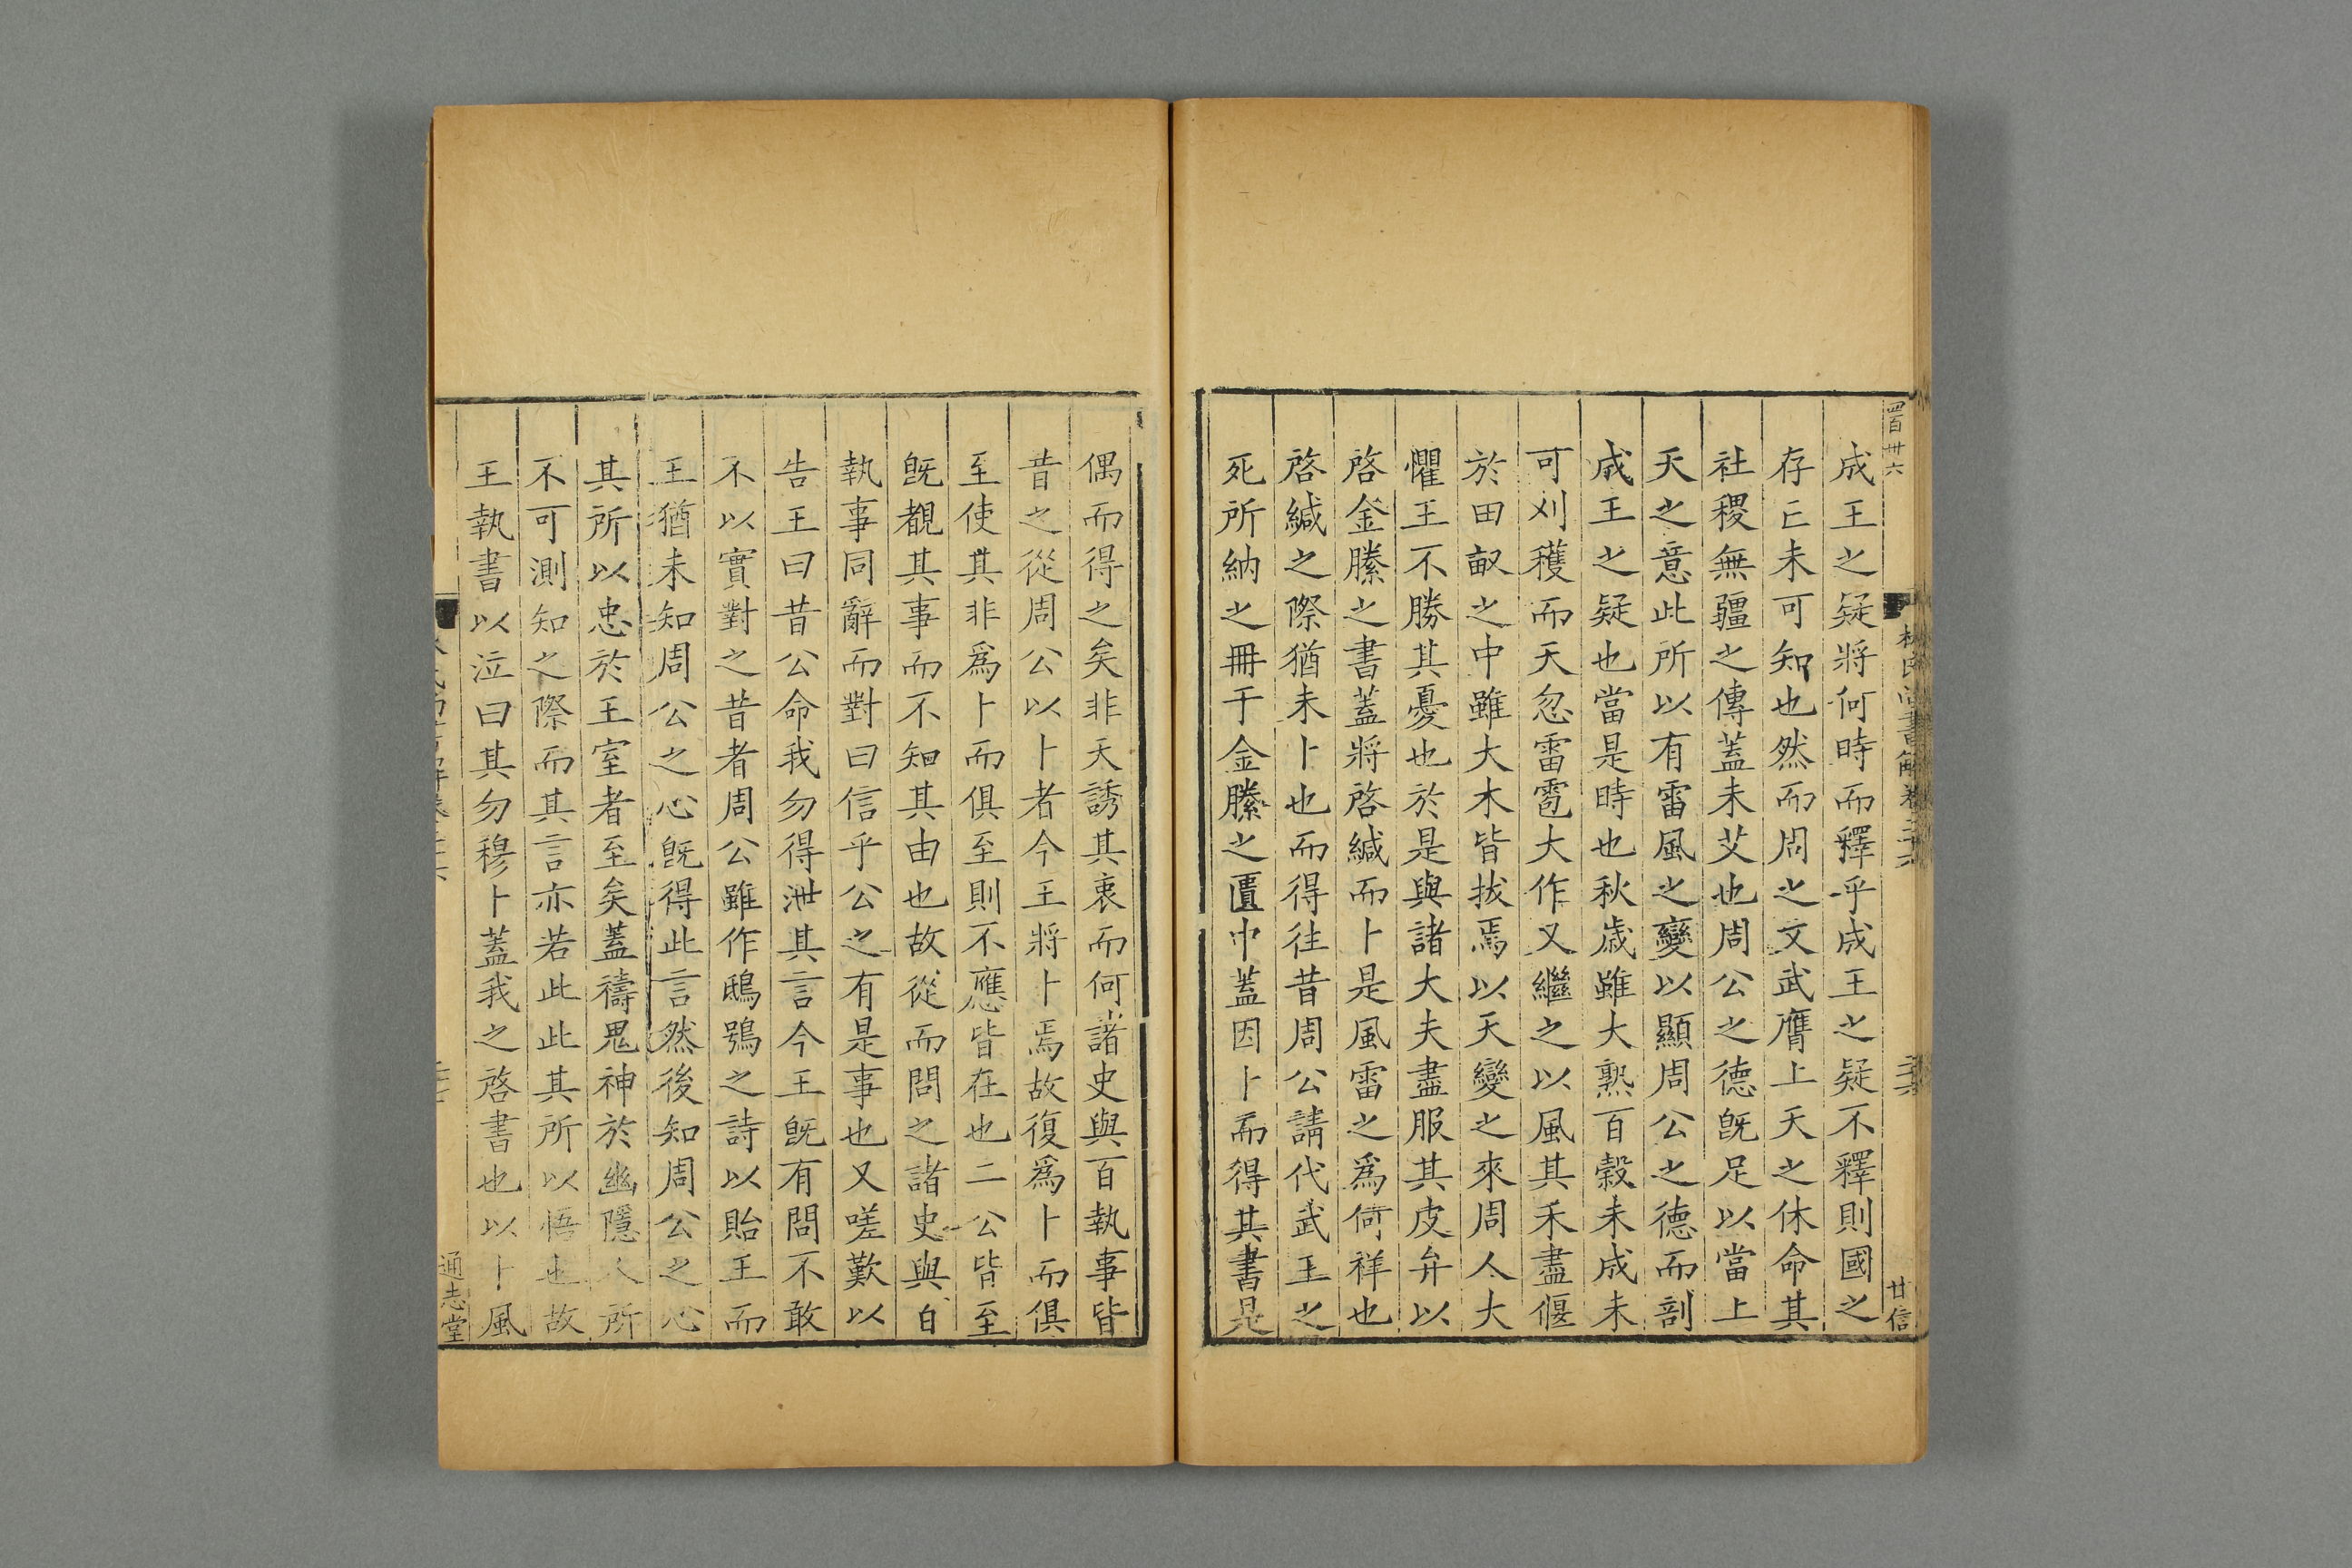 四百卅六
林氏尚書解卷二十六
甘信
成王之疑將何時而釋乎成王之疑不釋則國之
存亡未可知也然而周之文武膺上天之休命其
社稷無疆之傳蓋未艾也周公之德旣足以當上
天之意此所以有雷風之變以顯周公之德而剖
成王之疑也當是時也秋歲雖大熟百穀未成未
可刈穫而天忽雷雹大作又繼之以風其禾盡偃
於田畝之中雖大木皆拔焉以天變之來周人大
懼王不勝其憂也於是與諸大夫盡服其皮弁以
啓金縢之書蓋將啓緘而卜是風雷之爲何祥也
啓緘之際猶未卜也而得往昔周公請代武王之
死所納之冊于金縢之匱中蓋因卜而得其書是
偶而得之矣非天誘其衷而何諸史與百執事皆
昔之從周公以卜者今王將卜焉故復爲卜而俱
至使其非爲卜而俱至則不應皆在也二公皆至
旣覩其事而不知其由也故從而問之諸史與百
執事同辭而對曰信乎公之有是事也又嗟歎以
告王曰昔公命我勿得泄其言今王旣有問不敢
不以實對之昔者周公雖作鴟鴞之詩以貽王而
王猶未知周公之心旣得此言然後知周公之心
其所以忠於王室者至矣蓋禱鬼神於幽隱人所
不可測知之際而其言亦若此此其所以悟也故
王執書以泣曰其勿穆卜蓋我之啓書也以卜風
通志堂